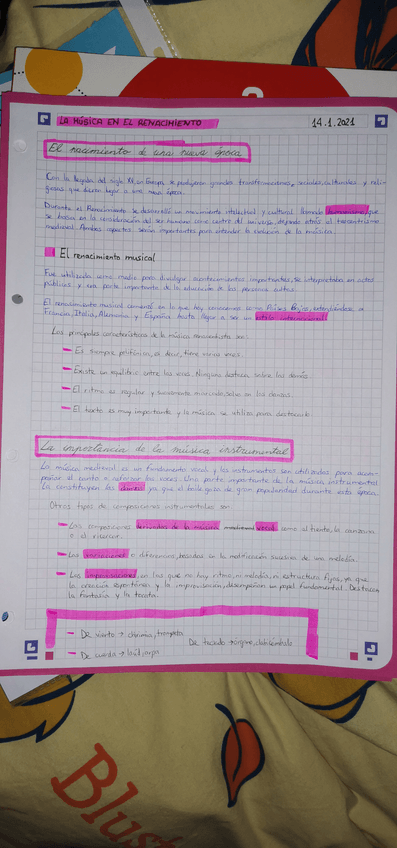 LA MÚSICA EN EL RENACIMIENTO
14.1.2021
El nacimiento de una nueva época
Con la llegada del siglo XV, en Europa, se produjeron grandes transformaciones, sociales, culturales y reli-
giosas que dieron lugar a una nueva época.
Durante el Renacimiento se desarrolló un movimiento intelectual y cultural llamado humanismo, que
se basaba en la consideración del ser humano como centro del universo, dejando atrás el teocentrismo
medieval. Ambos aspectos serán importantes para entender la evolución de la música.
El renacimiento musical
Fue utilizada como medio para divulgar acontecimientos importantes, se interpretaba en actos
públicos y era parte importante de la educación de las personas cultas.
El renacimiento musical comenzó en lo que hoy conocemos como Países Bajos, extendiéndose a
Francia, Italia, Alemania y España hasta llegar a ser un estilo internacional.
Las principales características de la música renacentista son:
Es siempre polifónica, es decir, tiene varias voces.
Existe un equilibrio entre las voces. Ninguna destaca sobre las demás.
El ritmo es regular y suavemente marcado, salvo en las danzas.
El texto es muy importante y la música se utiliza para destacarlo.
La importancia de la música instrumental
La música medieval es un fundamento vocal y los instrumentos son utilizados para acom-
pañar el canto o reforzar las voces. Una parte importante de la música instrumental
la constituyen las danzas ya que el baile goza de gran popularidad durante esta época.
Otros tipos de composiciones instrumentales son:
Las composiciones derivadas de la música vocal como el tiento, la canzona
o el ricercar.
Las variaciones o diferencias, basadas en la modificación sucesiva de una melodía.
Las improvisaciones, en las que no hay ritmo, ni melodía, ni estructura fijos, ya que
la creación espontánea y la improvisación, desempeñan un papel fundamental. Destacan
la fantasía y la tocata.
De viento → chirimía, trompeta
De tecladо → órgano, clavicémbalo
De cuerda → laúd, arpa
Blust